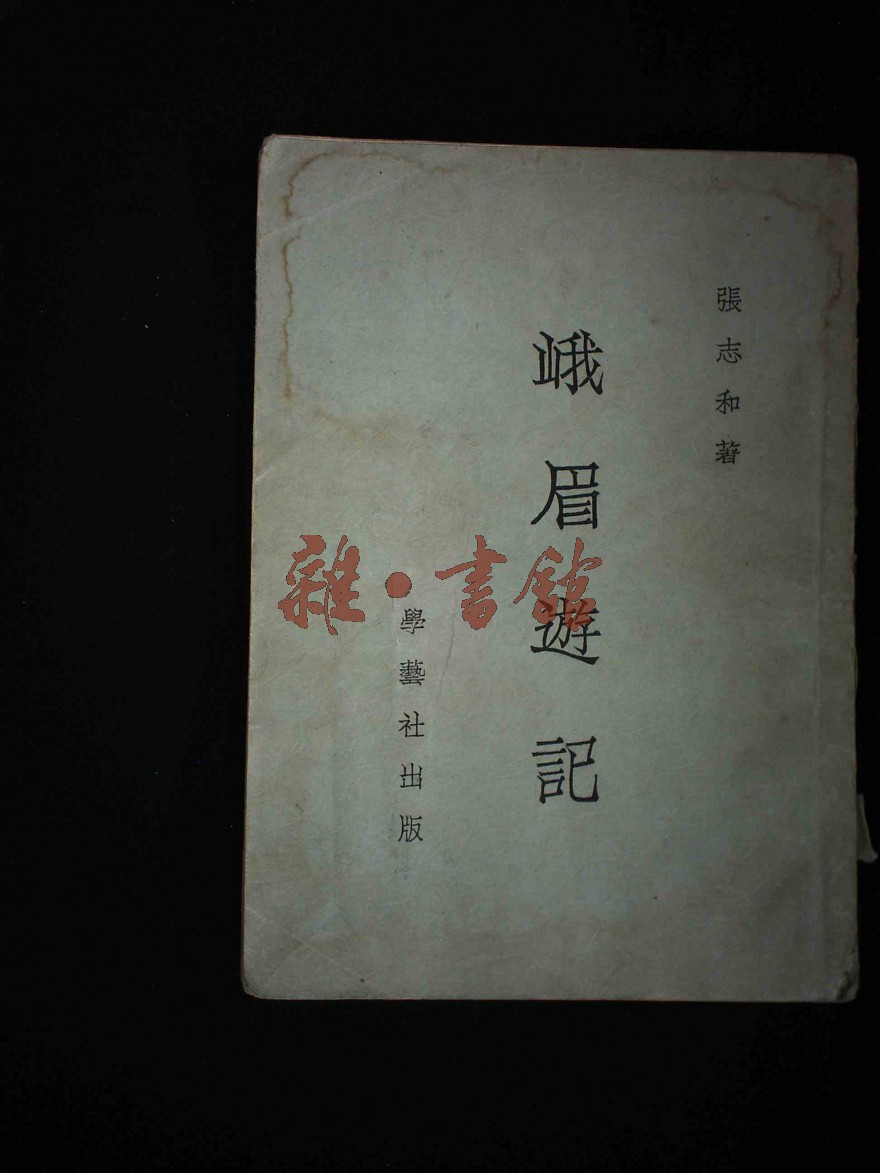 張志和著
峨眉遊記
學藝社出版
雜·書館